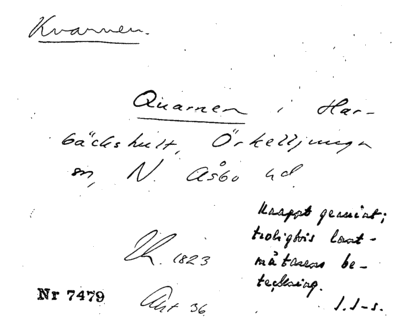 Kvarnen.
Quarnen i Har-
bäckshult, Örkelljunga
sn, N. Åsbo hd.
Knappt genuint;
troligtvis lant-
mätarens be-
teckning.
J.J-s.
Lk. 1823
Akt 36
Nr 7479